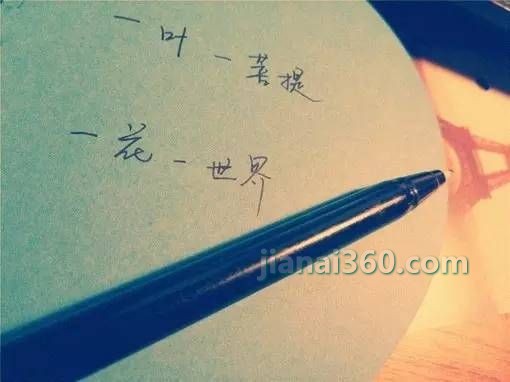 一叶一菩提
一花一世界
jianai360.com